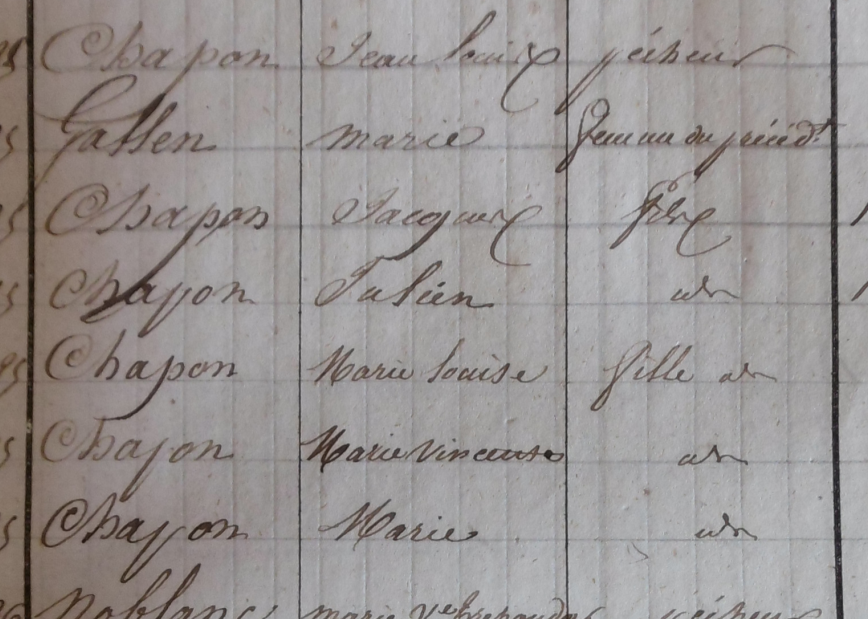 Chapon Jean Louis pêcheur
Gallen Marie femme du précédt
Chapon Jacques fils
Chapon Julien idm
Chapon Marie Louise fille idm
Chapon Marie Vincente idm
Chapon Marie idm
Noblanc Marie Ve pêcheur